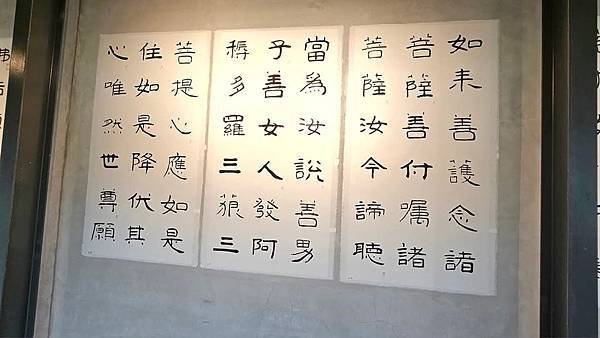 如来善護念諸
菩薩善付嘱諸
菩薩汝今諦聽
當爲汝說善男
子善女人發阿
耨多羅三藐三
菩提心應如是
住如是降伏其
心唯然世尊願